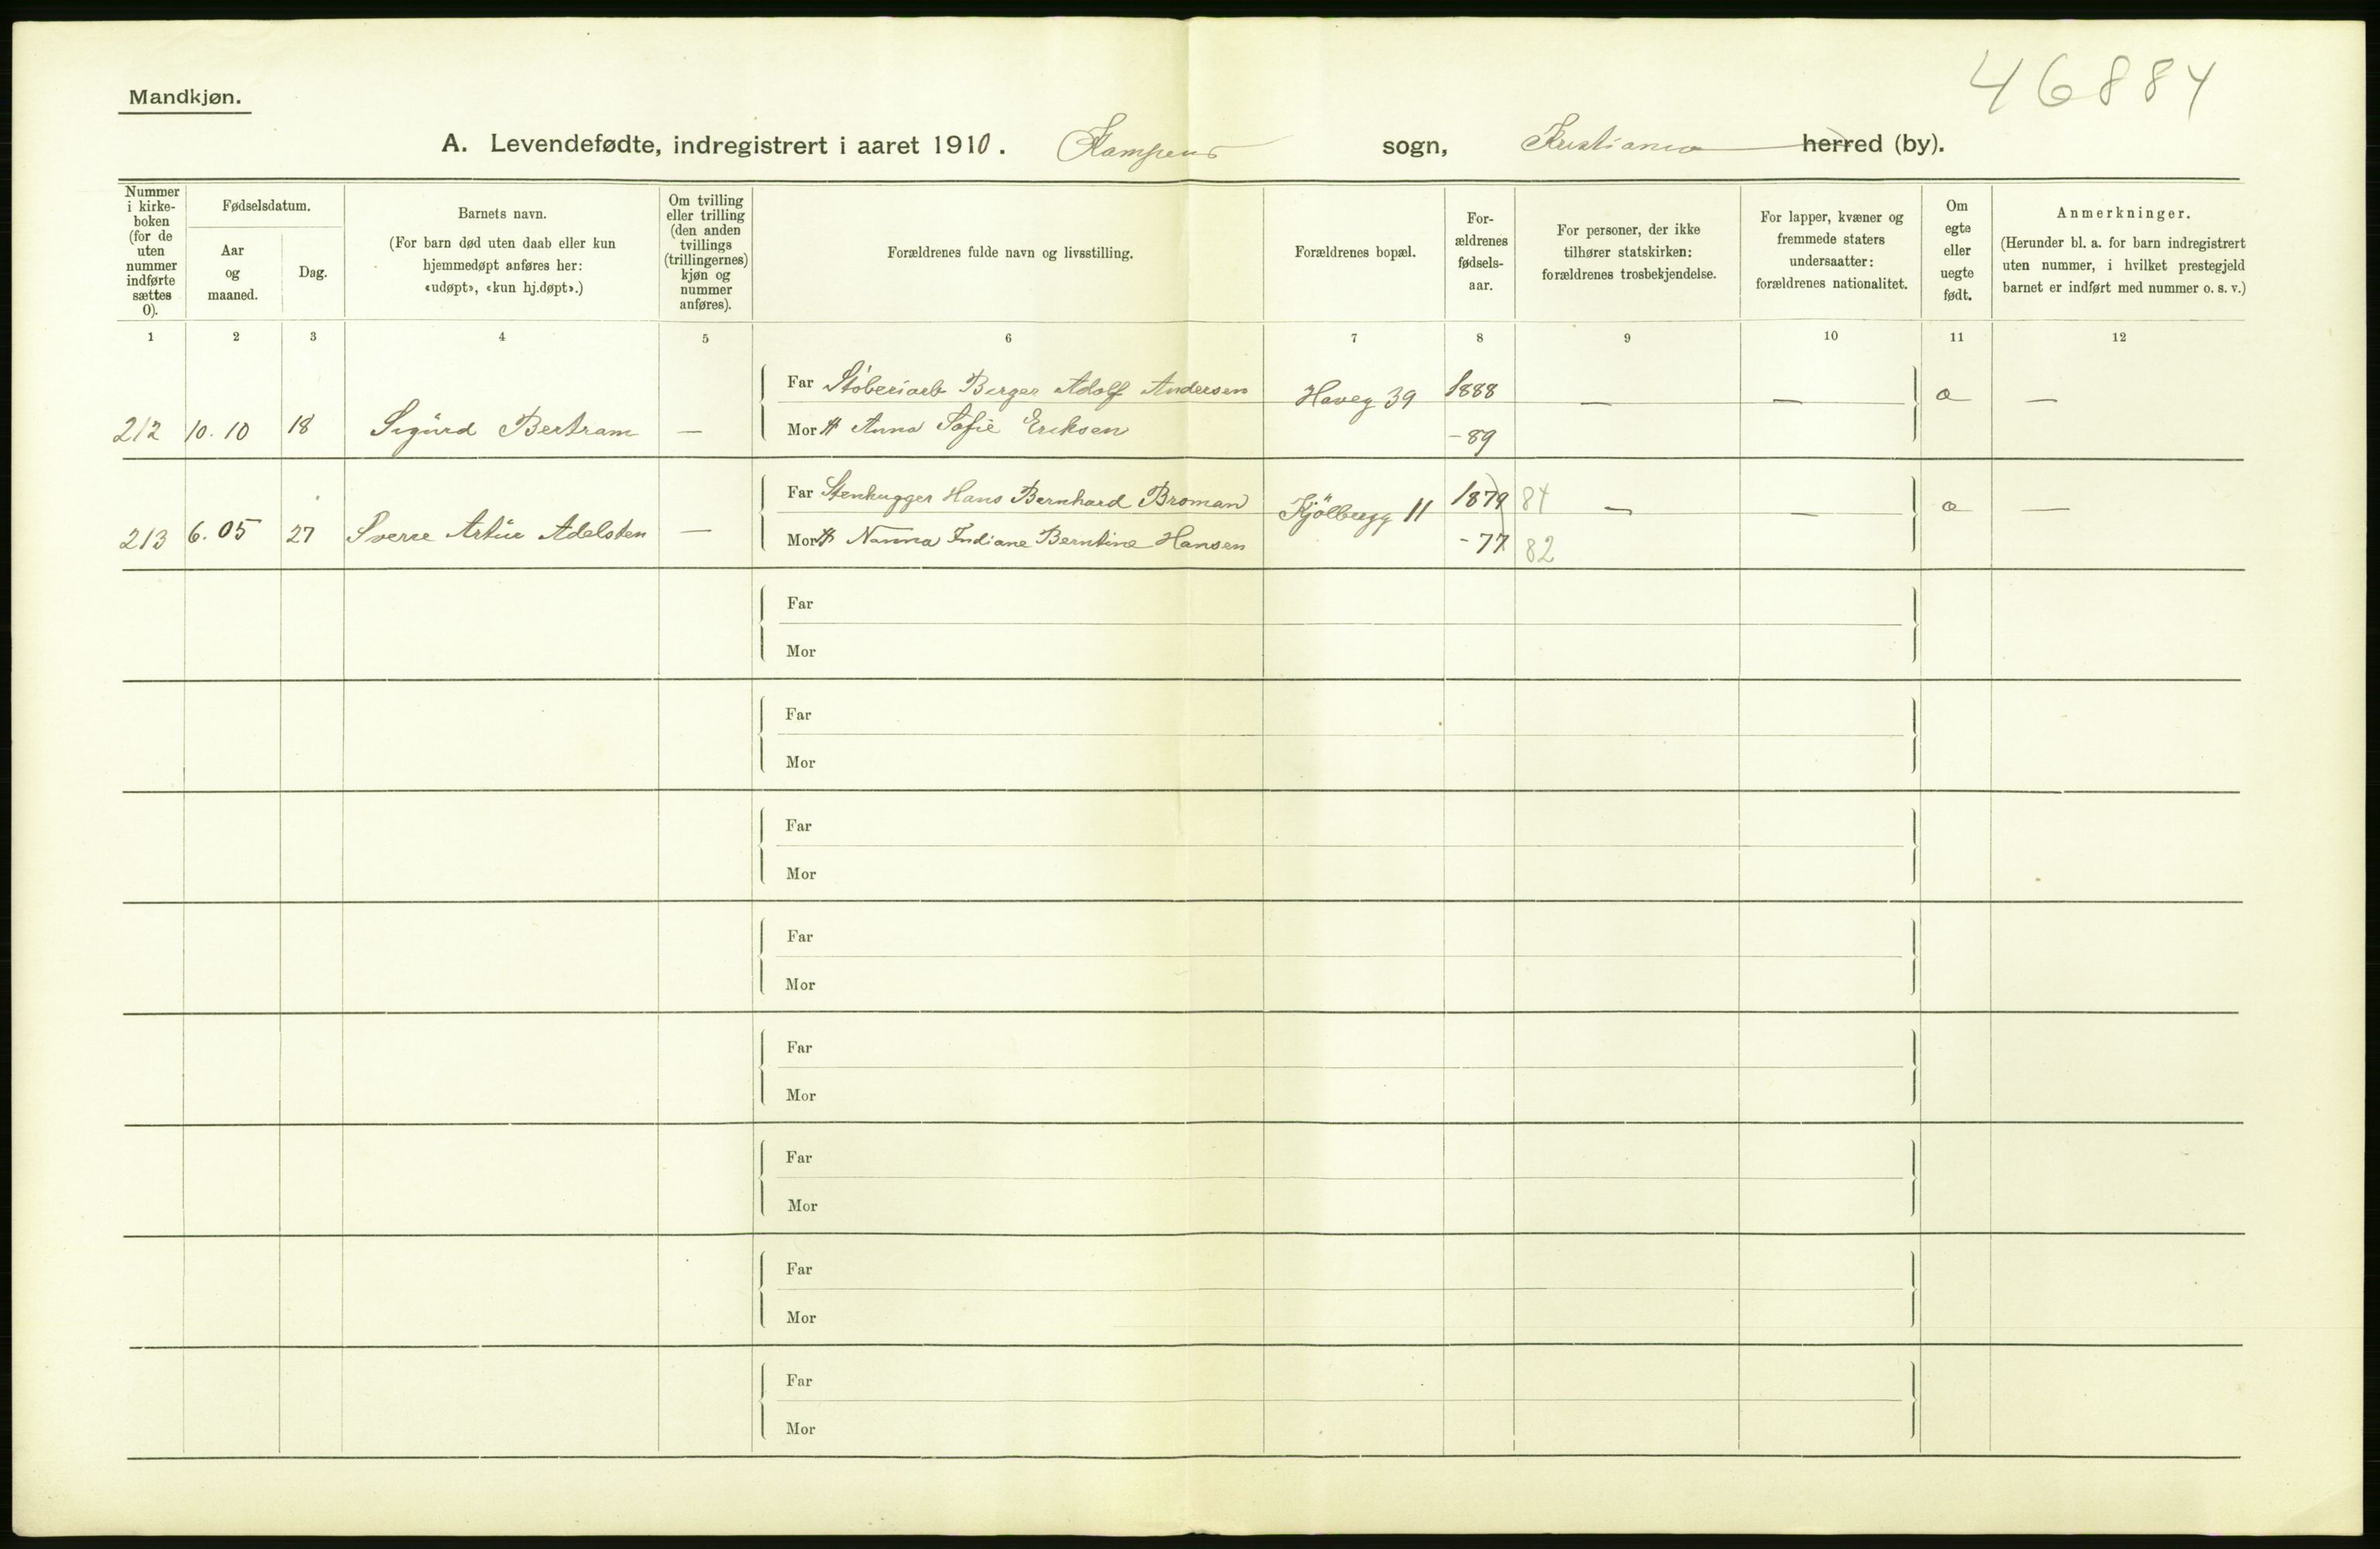 46884
Mandkjøn.
A. Levendefødte, indregistrert i aaret 1910. Kampens sogn, Kristiania herred (by).
Nummer i kirke-boken (for de uten nummer indførte sættes 0).
Fødselsdatum.
Aar og maaned.
Dag.
Barnets navn.
(For barn død uten daab eller kun hjemmedøpt anføres her: «udøpt», «kun hj.døpt».)
Om tvilling eller trilling (den anden tvillings (trillingernes) kjøn og nummer anføres).
Forældrenes fulde navn og livsstilling.
Forældrenes bopæl.
For-ældrenes fødsels-aar.
For personer, der ikke tilhører statskirken: forældrenes trosbekjendelse.
For lapper, kvæner og fremmede staters undersaatter: forældrenes nationalitet.
Om egte eller uegte født.
Anmerkninger.
(Herunder bl. a. for barn indregistrert uten nummer, i hvilket prestegjeld barnet er indført med nummer o. s. v.)
1 2 3 4 5 6 7 8 9 10 11 12
Far Støberiarb Birger Adolf Andersen Haveg 39 1888 — — a —
212 10. 10 18 Sigurd Bertram — Mor H Anna Sofie Eriksen - 89
Far Stenhugger Hans Bernhard Broman Kjölbergg 11 1879 84 — — a —
213 6. 05 27 Sverre Artur Adelsten — Mor H Nanna Indiane Berntine Hansen - 77 82
Far
Mor
Far
Mor
Far
Mor
Far
Mor
Far
Mor
Far
Mor
Far
Mor
Far
Mor